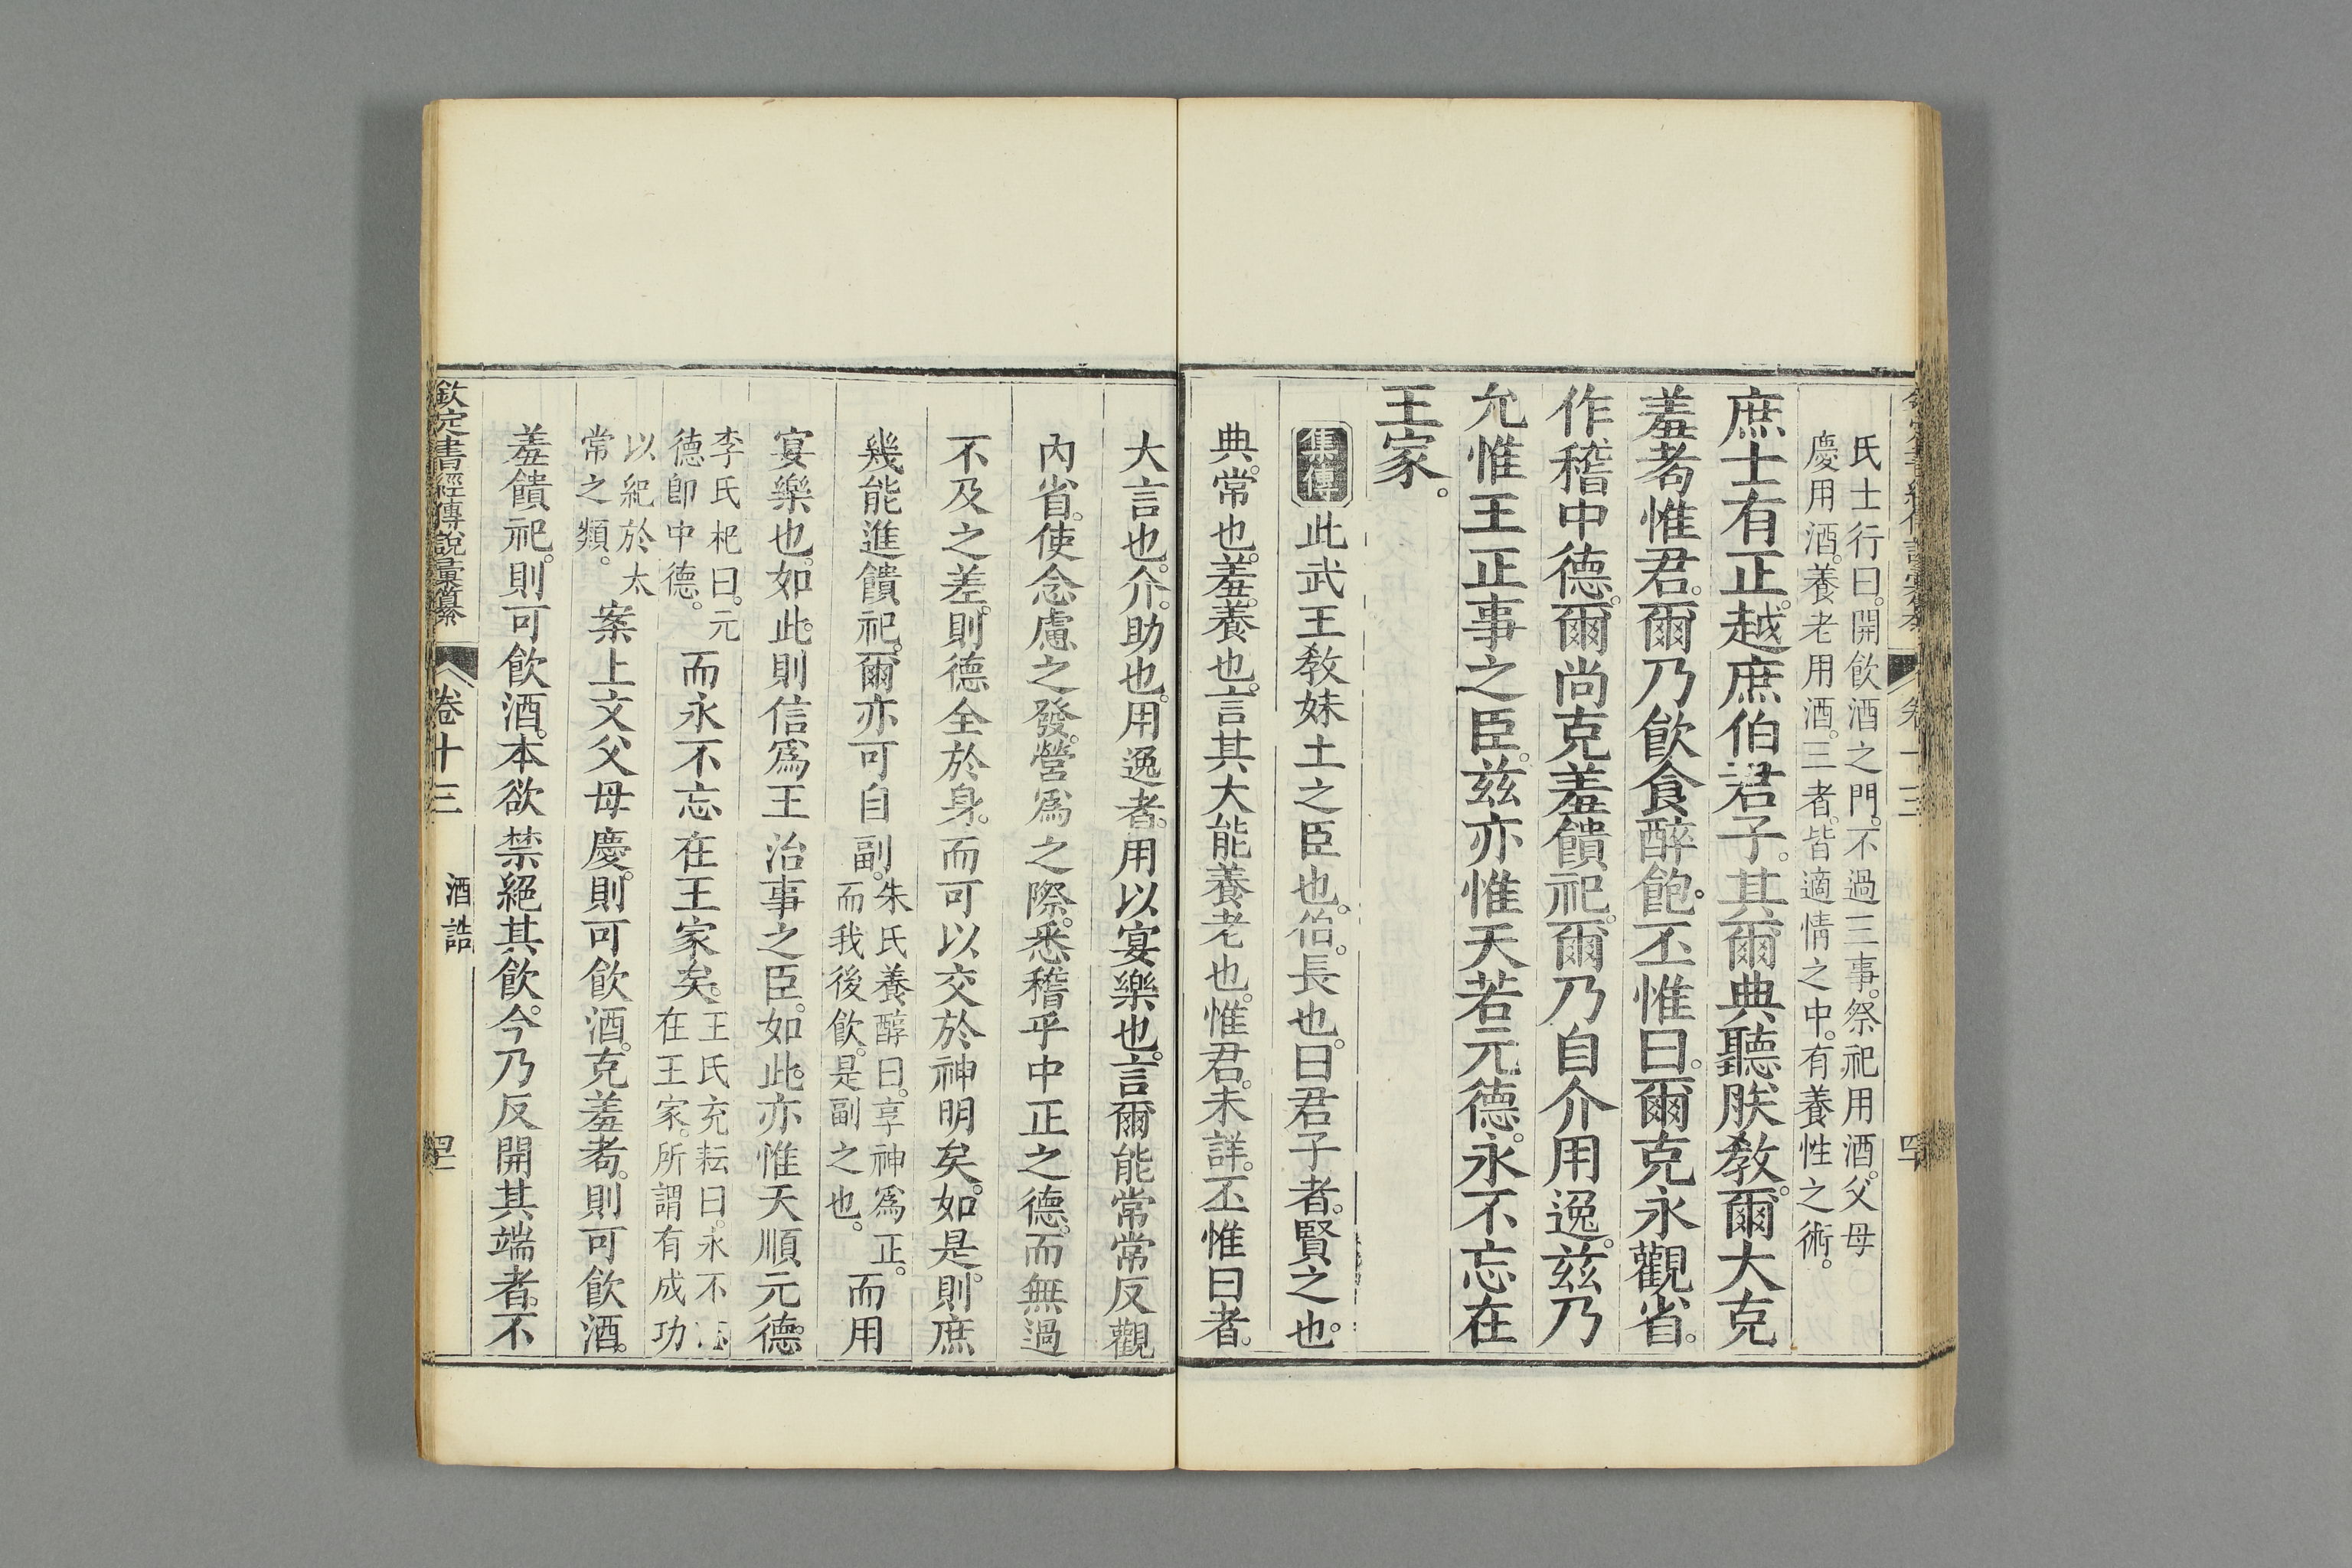 氏士行曰。開飲酒之門。不過三事。祭祀用酒。父母
慶用酒。養老用酒。三者。皆適情之中。有養性之術。
庶士有正。越庶伯君子。其爾典聽朕教。爾大克
羞耇惟君。爾乃飲食醉飽。丕惟曰。爾克永觀省。
作稽中德。爾尚克羞饋祀。爾乃自介用逸。茲乃
允惟王正事之臣。茲亦惟天若元德。永不忘在
王家。
集傳 此武王教妹土之臣也。伯。長也。曰君子者。賢之也。
典。常也。羞。養也。言其大能養老也。惟君。未詳。丕惟曰者。
大言也。介。助也。用逸者。用以宴樂也。言爾能常常反觀
內省。使念慮之發。營爲之際。悉稽乎中正之德。而無過
不及之差。則德全於身。而可以交於神明矣。如是。則庶
幾能進饋祀。爾亦可自副。
朱氏養醇曰。享神爲正。
而我後飲。是副之也。
而用
宴樂也。如此。則信爲王治事之臣。如此。亦惟天順元德。
李氏杞曰。元
德卽中德。
而永不忘在王家矣。
王氏充耘曰。永不忘
在王家。所謂有成功
以紀於太
常之類。
案上文父母慶。則可飲酒。克羞耇。則可飲酒。
羞饋祀。則可飲酒。本欲禁絕其飲。今乃反開其端者。不
欽定書經傳說彙纂 卷十三 酒誥